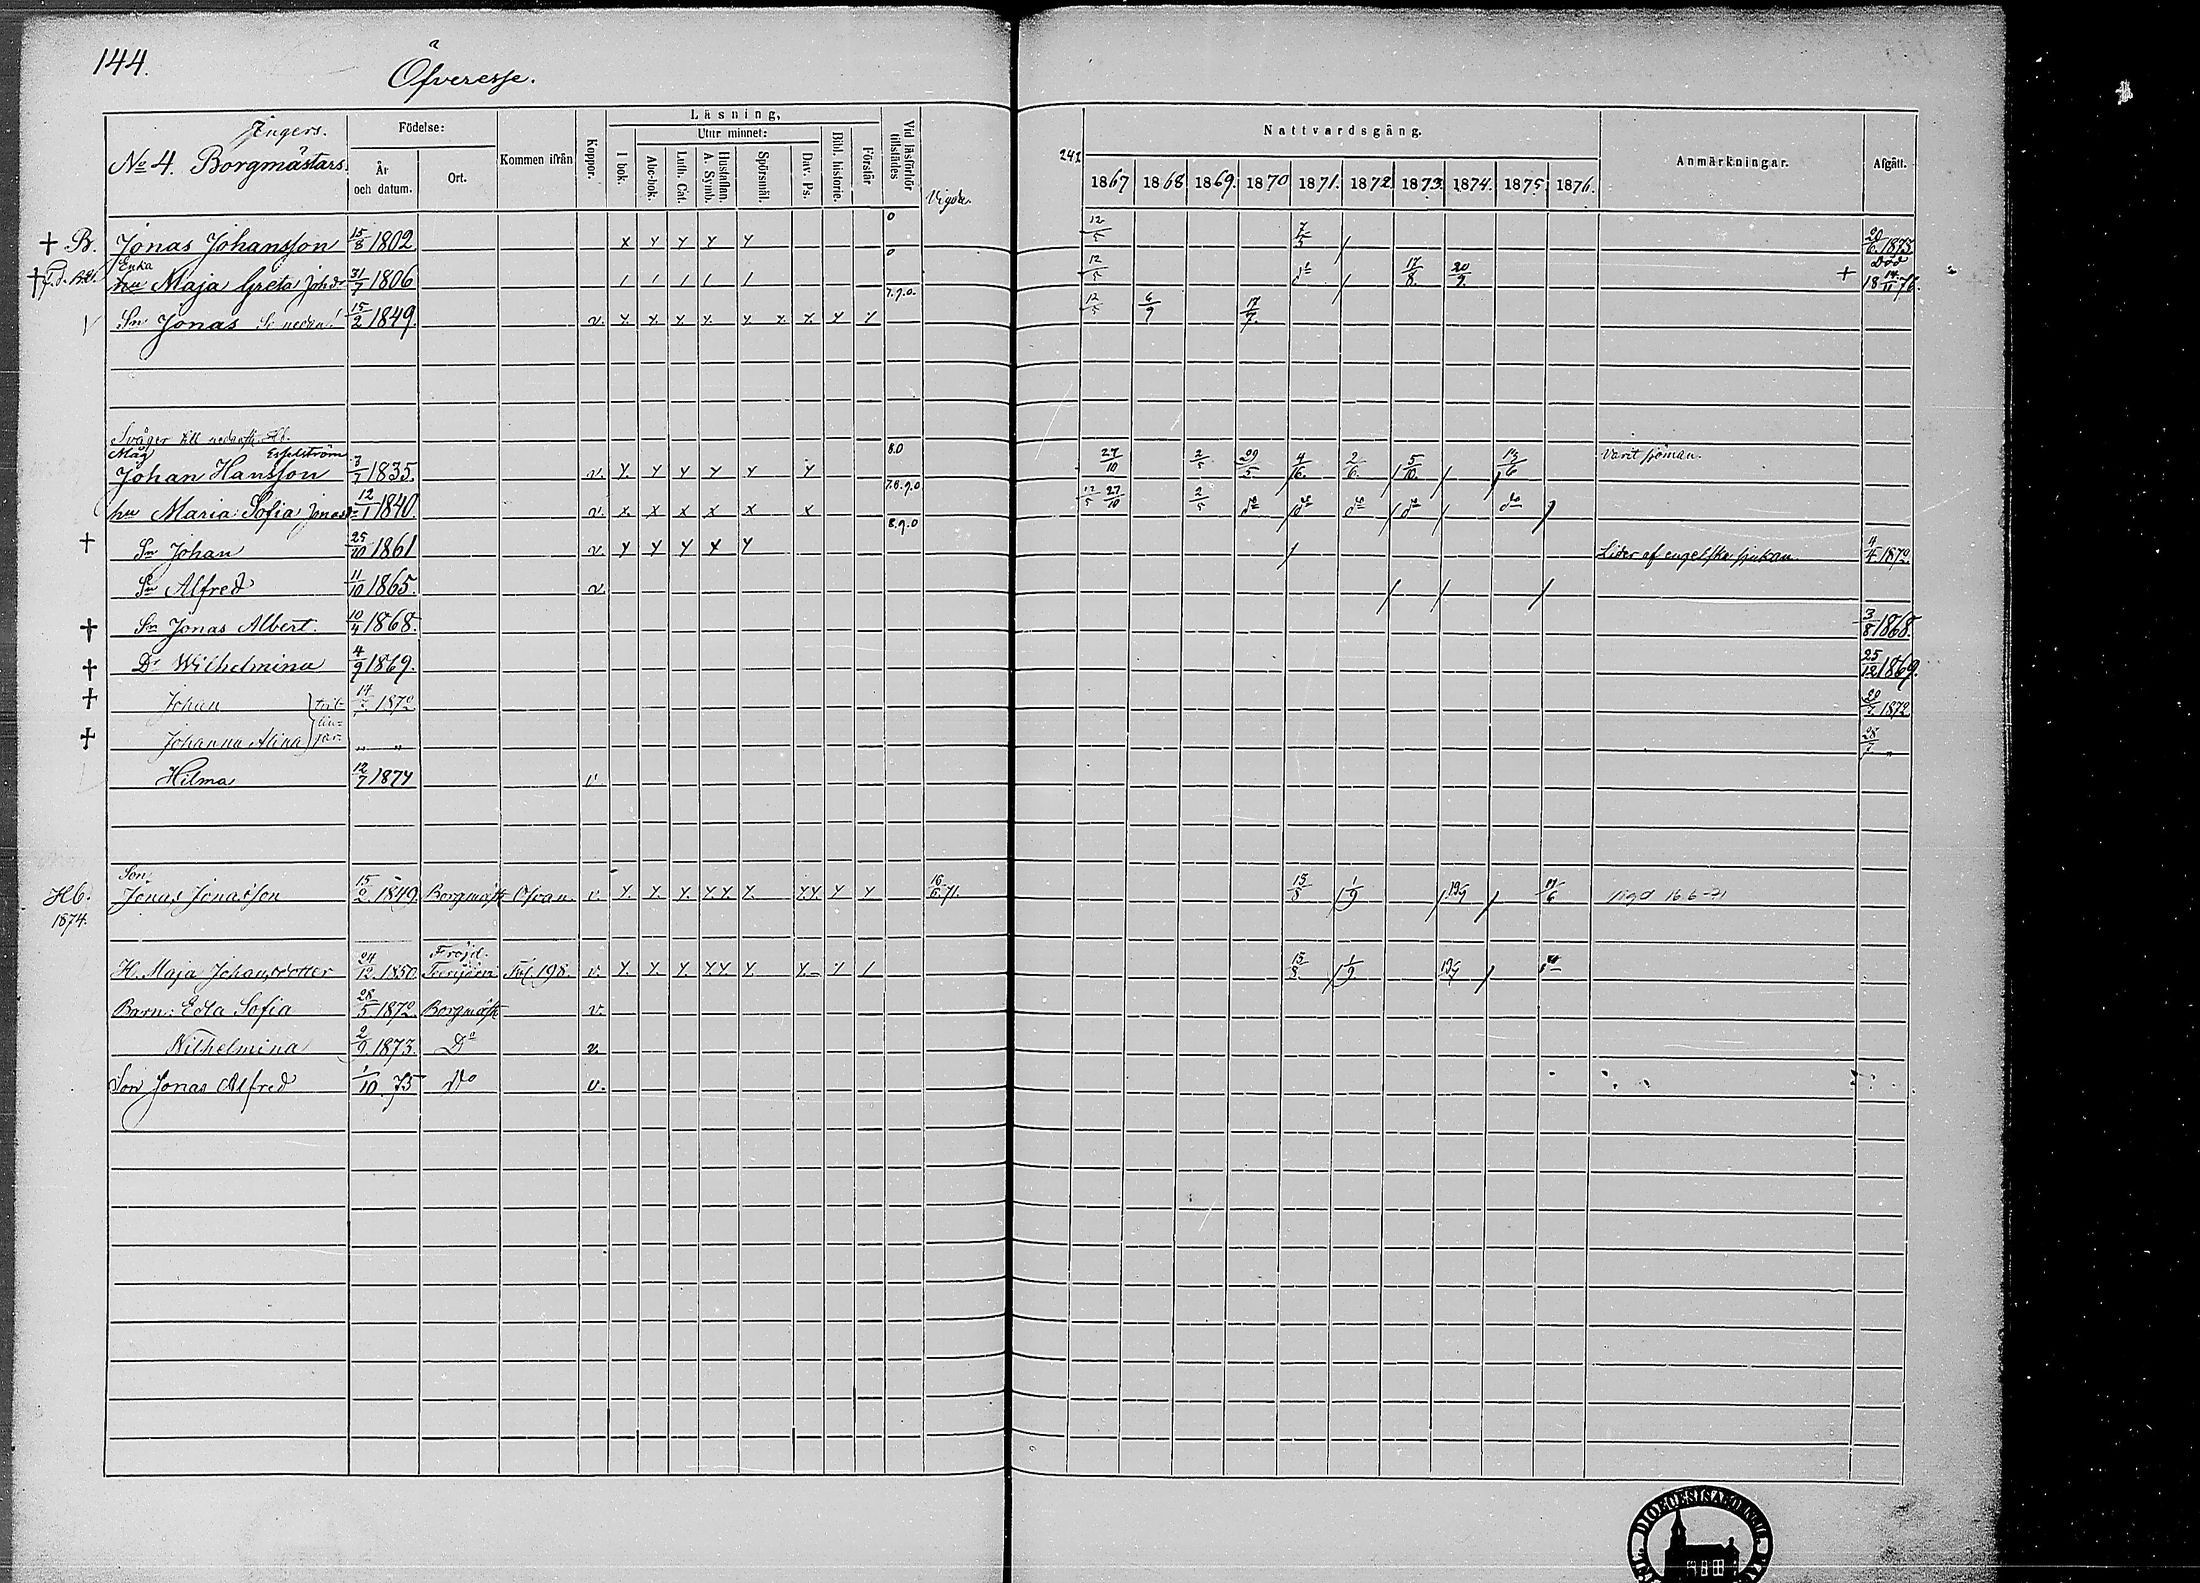 144.
Öfveresse.
Jngers.
No 4. Borgmästars.
Födelse:
År och datum.
Ort.
Kommen ifrån
Koppor.
Läsning,
I bok.
Utur minnet:
Abc-bok.
Luth. Cat.
Hustaflan. A. Symb.
Spörsmål.
Dav. Ps.
Bibl. historie.
Förstår
Vid läsförhör tillstädes
Vigde.
241
Nattvardsgång.
1867 1868 1869. 1870 1871. 1872 1873. 1874. 1875. 1876.
Anmärkningar.
Afgått.
† B. Jonas Johansson 15/8 1802 x y y y y 0 12/5 7/5 / 20/6 1875
Enka
† hu Maja Greta Joh dr 31/7 1806 / / / / / 0 12/5 do / 17/8. 20/9. + Död 18 14/11 76.
Sn Jonas Se nedan! 15/2 1849. v. y. y. y. y. y. y. y. y y 7.9.0. 12/5 6/9 17/7.
Svåger till nedanst. Hb.
Måg Esselström
Johan Hansson 3/7 1835. v. y. y y y y y 8.0 27/10 2/5 29/5. 4/6. 2/6. / 5/10. / 13/6 Varit sjöman.
hu Maria Sofia Jonasdr 12/1 1840. v. x. x x x x x 7.8.9.0 12/5 27/10 2/5 do do do do / do /
† Sn Johan 25/10 1861 v. y y y y y 8.9.0 / Lider af engelska sjukan. 4/4 1872.
Sn Alfred 11/10 1865. v. / / /
† Sn Jonas Albert. 10/4 1868. 3/8 1868.
† Dr Wilhelmina 4/9 1869. 25/12 1869.
† Johan 14/7 1872 20/7 1872
tvil-lin-gar.
† Johanna Alina " " 28/7 "
Hilma 12/7 1874 v.
Son,
Hb. 1874. Jonas Jonasson 15/2 1849. Borgmäst Ofvan. v. y. y. y. y.y. y. y.y. y y 16/6 71. 15/8 / 1/9 / 19/7 / 11/6 vigd 16.6-71
H. Maja Johansdotter 24/12. 1850. Fröjd. Tverjärv Fol. 198. v. y. y. y. yy y. y. y / 15/8 / 1/9. 19/7 /
Barn: Edla Sofia 28/5 1872. Borgmäst v.
Wilhelmina 2/9. 1873. Do v.
Son Jonas Alfred 1/10. 75 Do v.
DIOECESIS